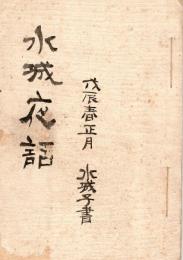 水城夜話
戊辰春正月 水城子書